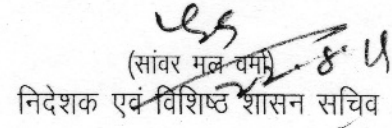 (सांवर मल वर्मा)
निदेशक एवं विशिष्ठ शासन सचिव